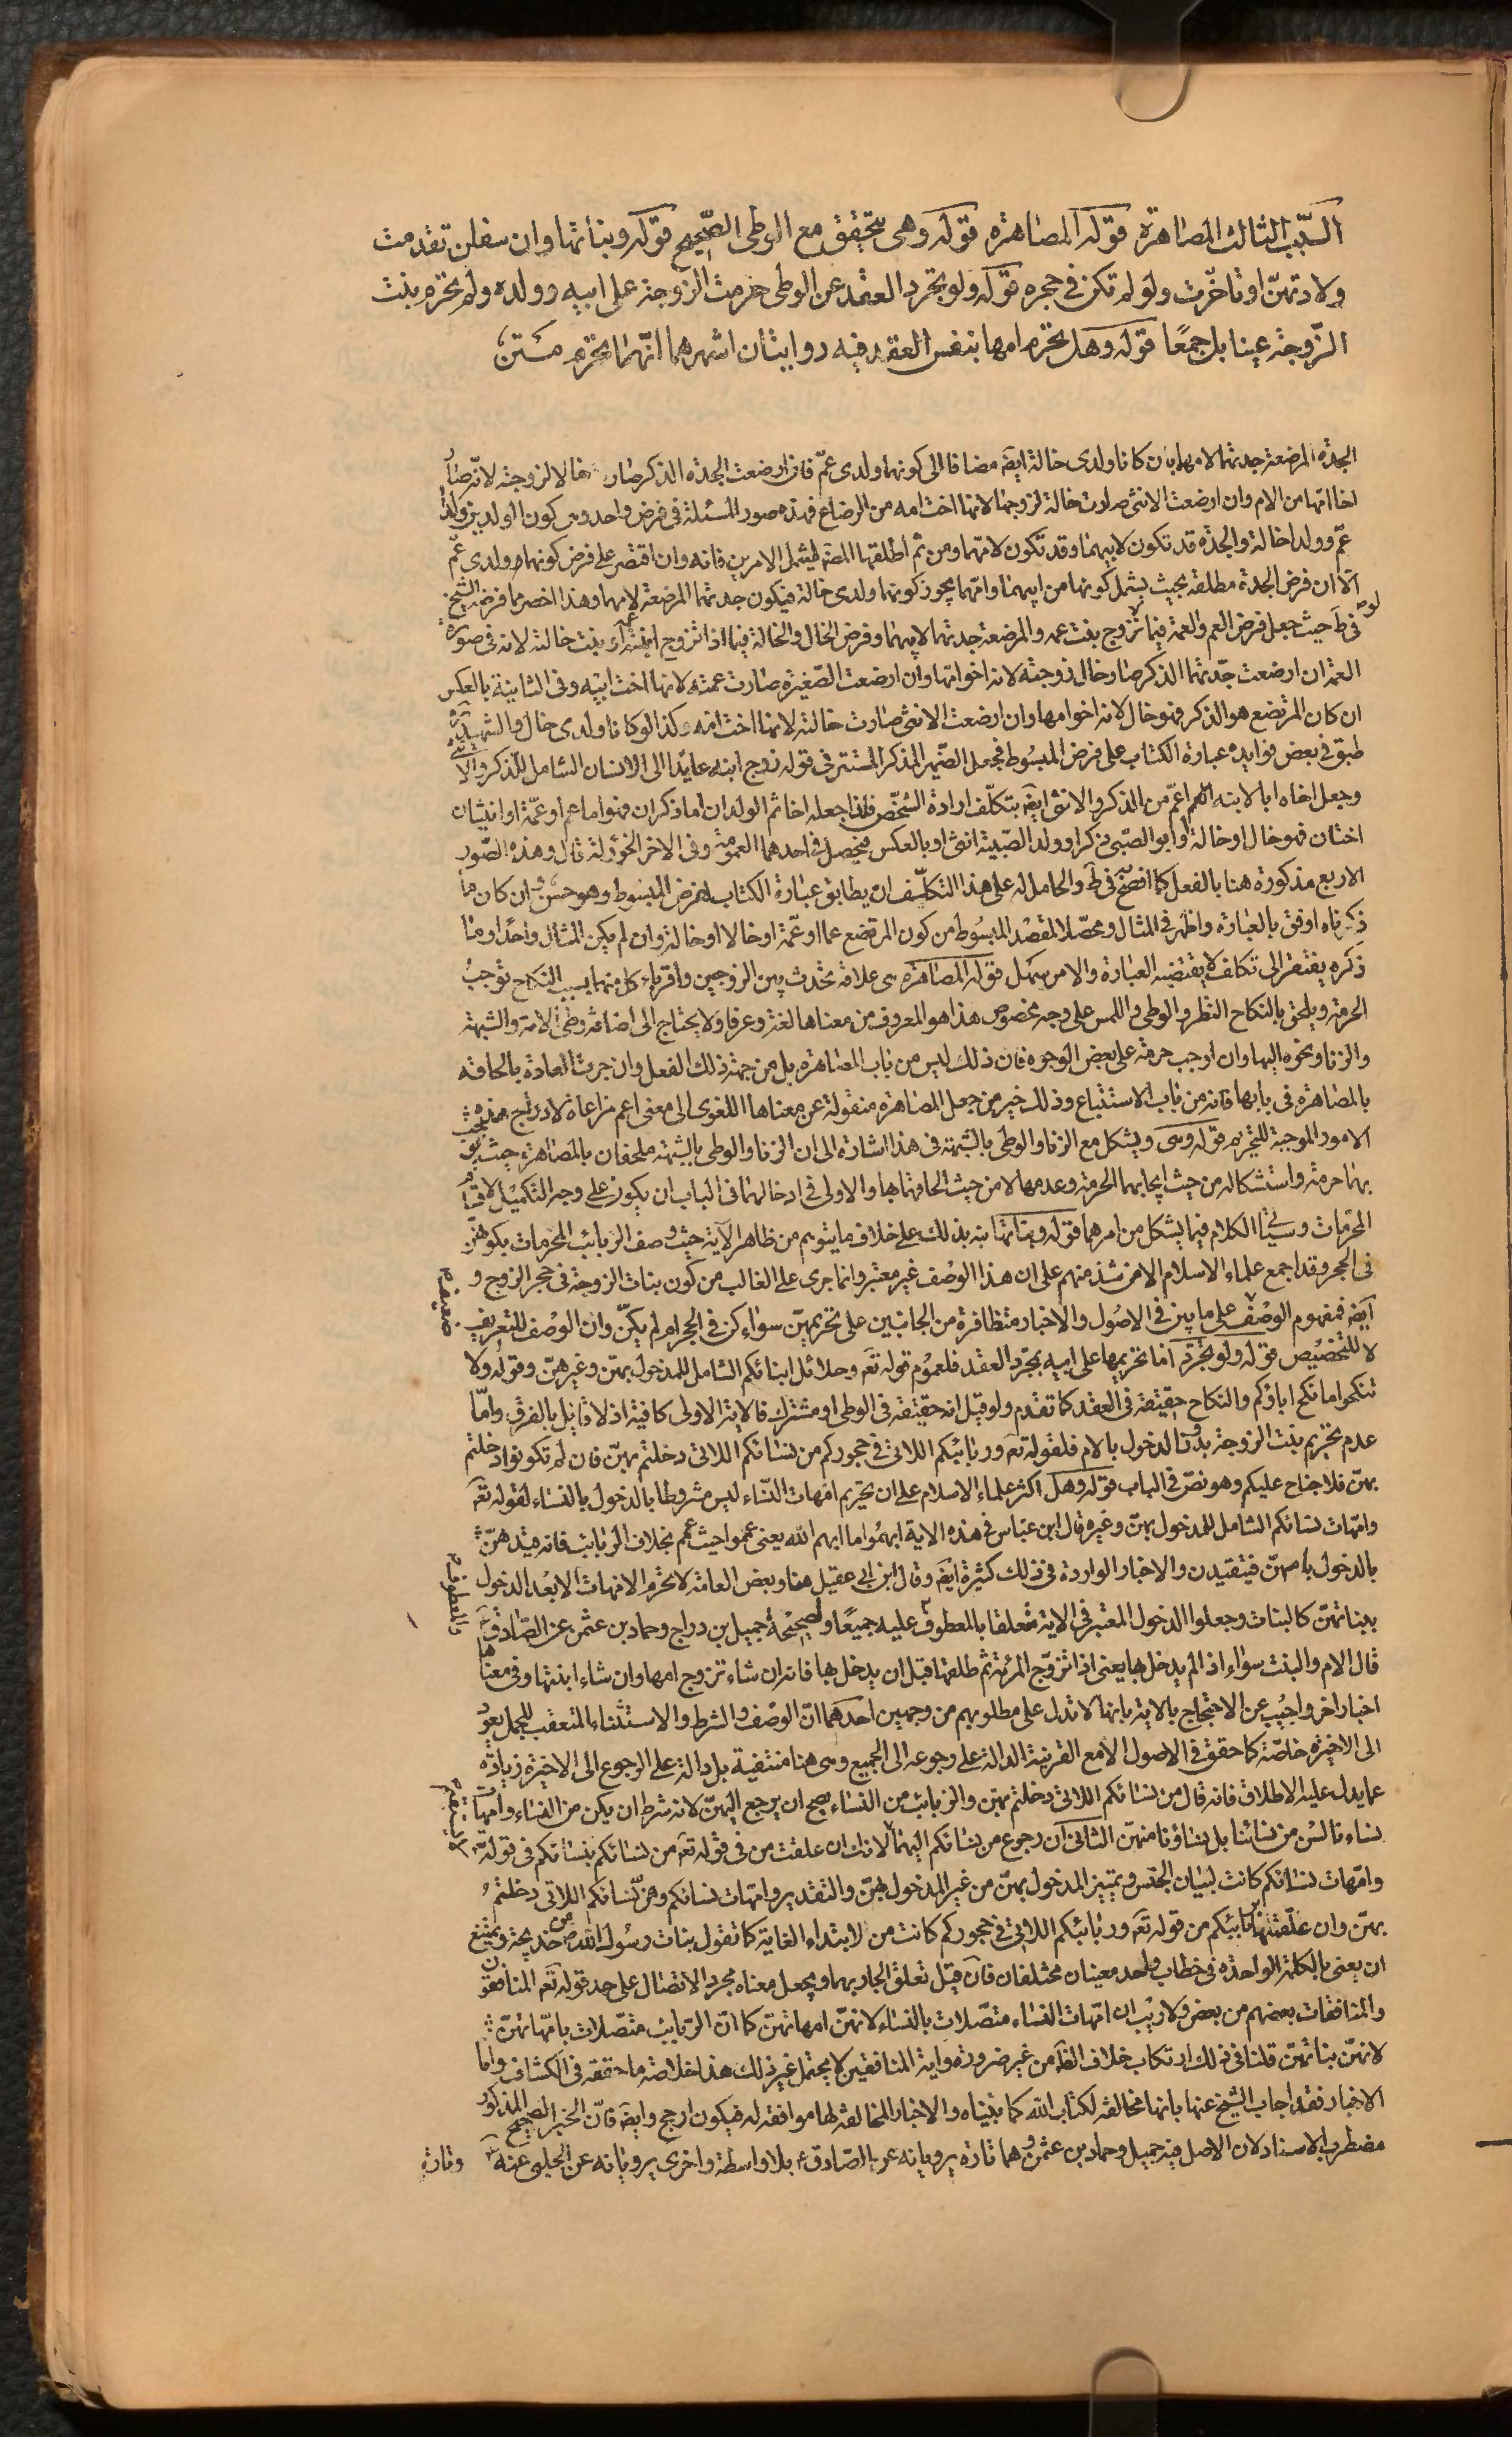 السّبب الثالث المصاهرة قوله المصاهرة قوله وهى يتحقق مع الوطى الصّحيح قوله وبناتها وان سفلن تقدمت
ولادتهنّ او تاخّرت ولو لم تكن فى حجره قوله ولو تجرد العقد عن الوطى حرمت الزّوجة على ابيه وولده ولم تحرم بنت
الزّوجة عينا بل جمعًا قوله وهل تحرم امها بنفس العقد فيه روايتان اشهرهما انّها تحرم متن
الجدة المرضعة جدتهما لامهما بان كانا ولدى خالة ايضَ مضافا الى كونهما ولدى عمّ فان ارضعت الجدة الذكر صار خالا لزوجته لانّه صار
اخا امّها من الام وان ارضعت الانثى صارت خالة لزوجها لانها اخت امه من الرضاع فهذه صور المسئلة فى فرض واحد وهى كون الولدين ولدى
عمّ وولدا خالة والجدّه قد تكون لابيهما وقد تكون لامّهما ومن ثم اطلقها المصَ ليشمل الامرين فانه وان اقتصر على فرض كونهما ولدى عمّ
الّا ان فرض الجدة مطلقة بحيث يشمل كونها من ابيهما وامّهما يجوز كونها ولدى خالة فيكون جدتهما المرضعة لامهما وهذا اخصر مما فرضه الشيخ
فى طَ حيث جعل فرض العم والعمة فيما تزوج بنت عمه والمرضعة جدتهما لابيهما وفرض الخال والخالة فيما اذا تزوج ابنته او بنت خالته لانه فى صورة
العمّ ان ارضعت جدّتهما الذكر صار خال زوجته لانه اخو امّها وان ارضعت الصّغيرة صارت عمته لانها اخت ابيه وفى الثانية بالعكس
ان كان المرتضع هو الذكر فهو خال لانه اخو امها وان ارضعت الانثى صارت خالته لانها اخت امّه وكذا لو كانا ولدى خال والشهيد ره
طبق فى بعض فوايده عبارة الكتاب على فرض المبسُوط فجعل الضّمير المذكر المستتر فى قوله زوج ابنه عايدًا الى الانسان الشامل للذكر والانثى
وجعل اخاه ابا لابنه اعمّ من الذكر والانثى ايضَ بتكلّف ارادة الشخص فاذا جعله اخا ثم الولدان اما ذكران فهو اما عم او عمّة او انثيان
اختان فهو خال او خالة او ابو الصّبى ذكرا وولد الصّبية انثى او بالعكس فيحصل فى احدهما العمومة وفى الاخر الخؤلة قال وهذه الصّور
الاربع مذكورة هنا بالفعل كما افصح فى طَ والحامل له على هذا التكلّف ان يطابق عبارة الكتاب لفرض المبسُوط وهو حسن وان كان ما
ذكرناه اوفق بالعبارة واظهر فى المثال ومحصّلا لمقصد المبسُوط من كون المرتضع عما او عمّة او خالا او خالة وان لم يكن المثال واحدًا وما
ذكره يفتقر الى تكلف لا يقتضيه العبارة والامر سهل قوله المصاهرة هى علاقة تحدث بين الزوجين واقرباء كل منهما بسبب النكاح توجب
الحرمة ويلحق بالنكاح النظر والوطى واللمس على وجه مخصوص هذا هو المعروف من معناها لغة وعرفا ولا يحتاج الى اضافة وطئ الامة والشبهة
والزنا ونحوه اليها وان اوجب حرمة على بعض الوجوه فان ذلك ليس من باب المصاهرة بل من جهة ذلك الفعل وان جرت العادة بالحاقه
بالمصاهرة فى بابها فانه من باب الاستتباع وذلك خير من جعل المصاهرة منقولة عن معناها اللغوى الى معنى اعم مراعاة لادراج هذه
الامور الموجبة للتحريم قوله وهى ويشكل مع الزنا والوطى بالشبهة فى هذا اشارة الى ان الزنا والوطى بالشبهة ملحقان بالمصاهرة حيث
بهما حرمة واستشكاله من حيث ايجابهما الحرمة وعدمها لا من حيث الحاقهما بها والاولى فى ادخالهما فى الباب ان يكون على وجه التكميل لاقسام
المحرّمات وسيأتى الكلام فيما يشكل من امرهما قوله وبناتها نبه بذلك على خلاف ما يتوهم من ظاهر الآية حيث وصف الربائب المحرمات بكونهنّ
فى الحجر وقد اجمع علماء الاسلام الا من شذ منهم على ان هذا الوصف غير معتبر وانما جرى على الغالب من كون بنات الزوجة فى حجر الزوج و
ايضَ فمفهوم الوصف على ما بين فى الاصُول والاخبار متظافرة من الجانبين على تحريمهنّ سواء كن فى الحجر ام لم يكنّ وان الوصف للتعريف
ضعيف
لا للتخصيص قوله ولو تجرد اما تحريمها على ابيه بمجرّد العقد فلعموم قوله تعَ وحلائل ابنائكم الشامل للمدخول بهنّ وغيرهنّ وقوله ولا
تنكحوا ما نكح اباؤكم والنكاح حقيقة فى العقد كما تقدم ولو قيل انه حقيقة فى الوطى او مشترك فالاية الاولى كافية اذ لا قايل بالفرق وامّا
عدم تحريم بنت الزوجة بدون الدخول بالام فلقوله تعَ وربائبكم اللاتى فى حجوركم من نسائكم اللاتى دخلتم بهنّ فان لم تكونوا دخلتم
بهنّ فلا جناح عليكم وهو نصّ فى الباب قوله وهل اكثر علماء الاسلام على ان تحريم امّهات النّساء ليس مشروطا بالدخول بالنساء لقوله تعَ
وامّهات نسائكم الشامل للمدخول بهنّ وغيره قال ابن عبّاس فى هذه الاية ابهمُوا ما ابهم الله يعنى عمموا حيث عمم بخلاف الرّبائب فانه قيدهنّ
بالدخول بامهنّ فيتقيدن والاخبار الواردة فى ذلك كثيرة ايضَ وقال ابن ابى عقيل منا وبعض العامّة لا تحرم الامهات الا بعد الدخول
ببناتهنّ كالبنات وجعلوا الدخول المعتبر فى الاية متعلقا بالمعطوف عليه جميعًا ولصحيحة جميل بن دراج وحماد بن عثمن عن الصّادق ع
والمعطوف
قال الام والبنت سواء اذا لم يدخل بها يعنى اذا تزوّج المرئة ثم طلقها قبل ان يدخل بها فانه ان شاء تزوج امها وان شاء ابنتها وفى معناها
اخبار اخر واجيب عن الاحتجاج بالاية بانها لا تدل على مطلوبهم من وجهين احدهما انّ الوصف والشرط والاستثناء المتعقب للجمل يعود
الى الاخيرة خاصّة كما حقق فى الاصول الا مع القرينة الدالة على رجوعه الى الجميع وهى هنا منتفية بل دالة على الرجوع الى الاخيرة زيادة
عما يدل عليه الاطلاق فانه قال من نسائكم اللاتى دخلتم بهنّ والربائب من النساء يصح ان يرجع اليهنّ لانه شرط ان يكن من النساء وامّهات
نساءنا لسْن من نسائنا بل نساؤنا منهنّ الثانى ان رجوع من نسائكم اليهما لا ان علقت من فى قوله تعَ من نسائكم بنسائكم فى قوله تعَ
وامّهات نسائكم كانت لبيان الجنس وتمييز المدخول بهنّ من غير المدخول بهنّ والتقدير وامّهات نسائكم وهنّ نسائكم اللاتى دخلتم
بهنّ وان علّقتها بربائبكم من قوله تعَ وربائبكم اللاتى فى حجوركم كانت من لابتداء الغاية كما تقول بنات رسُول اللهص من خديجة ويمتنع
ان يعنى بالكلمة الواحدة فى خطاب واحد معينان مختلفان فان قيل تعلق الجار بهما ويجعل معناه مجرد الاتصال على حد قوله تعَ المنافقون
والمنافقات بعضهم من بعض ولا ريب ان امّهات النساء متصّلات بالنساء لانهنّ امهاتهنّ كما انّ الرّبايب متصّلات بامّهاتهنّ
لانهنّ بناتهنّ قلنا فى ذلك ارتكاب خلاف الظَ من غير ضرورة واية المنافقين لا يحتمل غير ذلك هذا خلاصة ما حققه فى الكشاف واما
الاخبار فقد اجاب الشيخ عنها بانها مخالفة لكتاب الله كما بيناه والاخبار المخالفة لها موافقة له فيكون ارجح وايضَ فانّ الخبر الصحيح المذكور
مضطرب الاسناد لان الاصل فيه جميل وحماد بن عثمن وهما تارة يرويانه عن الصّادقع بلا واسطة واخرى يرويانه عن الحلبى عنه ع
وتارة